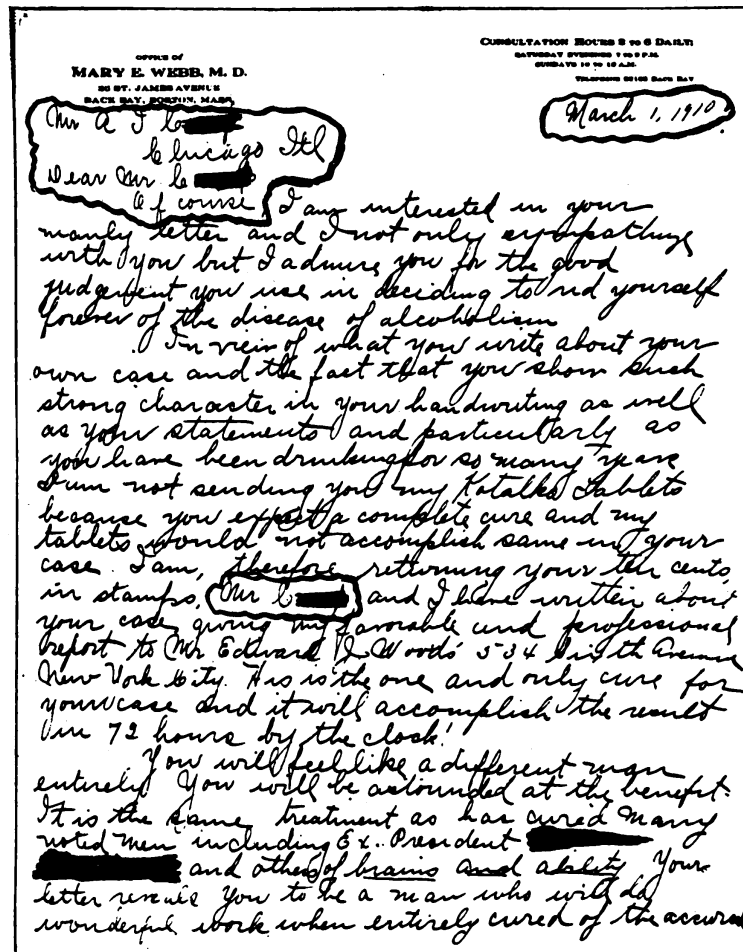 OFFICE OF
MARY E. WEBB, M. D.
20 ST. JAMES AVENUE
BACK BAY, BOSTON, MASS.
CONSULTATION HOURS 2 TO 6 DAILY;
SATURDAY EVENINGS 7 TO 9 P.M.
SUNDAYS 10 TO 12 A.M.
TELEPHONE BACK BAY
March 1, 1910
Mr A J C
Chicago Ill
Dear Mr C
Of course, I am interested in your
manly letter and I not only sympathize
with you but I admire you for the good
judgement you use in deciding to rid yourself
forever of the disease of alcoholism
In view of what you write about your
own case and the fact that you show such
strong character in your handwriting as well
as your statements and particularly as
you have been drinking for so many years
I am not sending you my Kotalko Tablets
because you expect a complete cure and my
tablets would not accomplish same in your
case I am, therefore returning your ten cents
in stamps, Mr C and I have written about
your case giving my favorable and professional
report to Mr Edward J Woods 534 Sixth Avenue
New York City. His is the one and only cure for
your case and it will accomplish the result
in 72 hours by the clock!
You will feel like a different man
entirely You will be astounded at the benefit.
It is the same treatment as has cured many
noted men including Ex. President
and others of brains and ability Your
letter reveals you to be a man who will do
wonderful work when entirely cured of the accursed